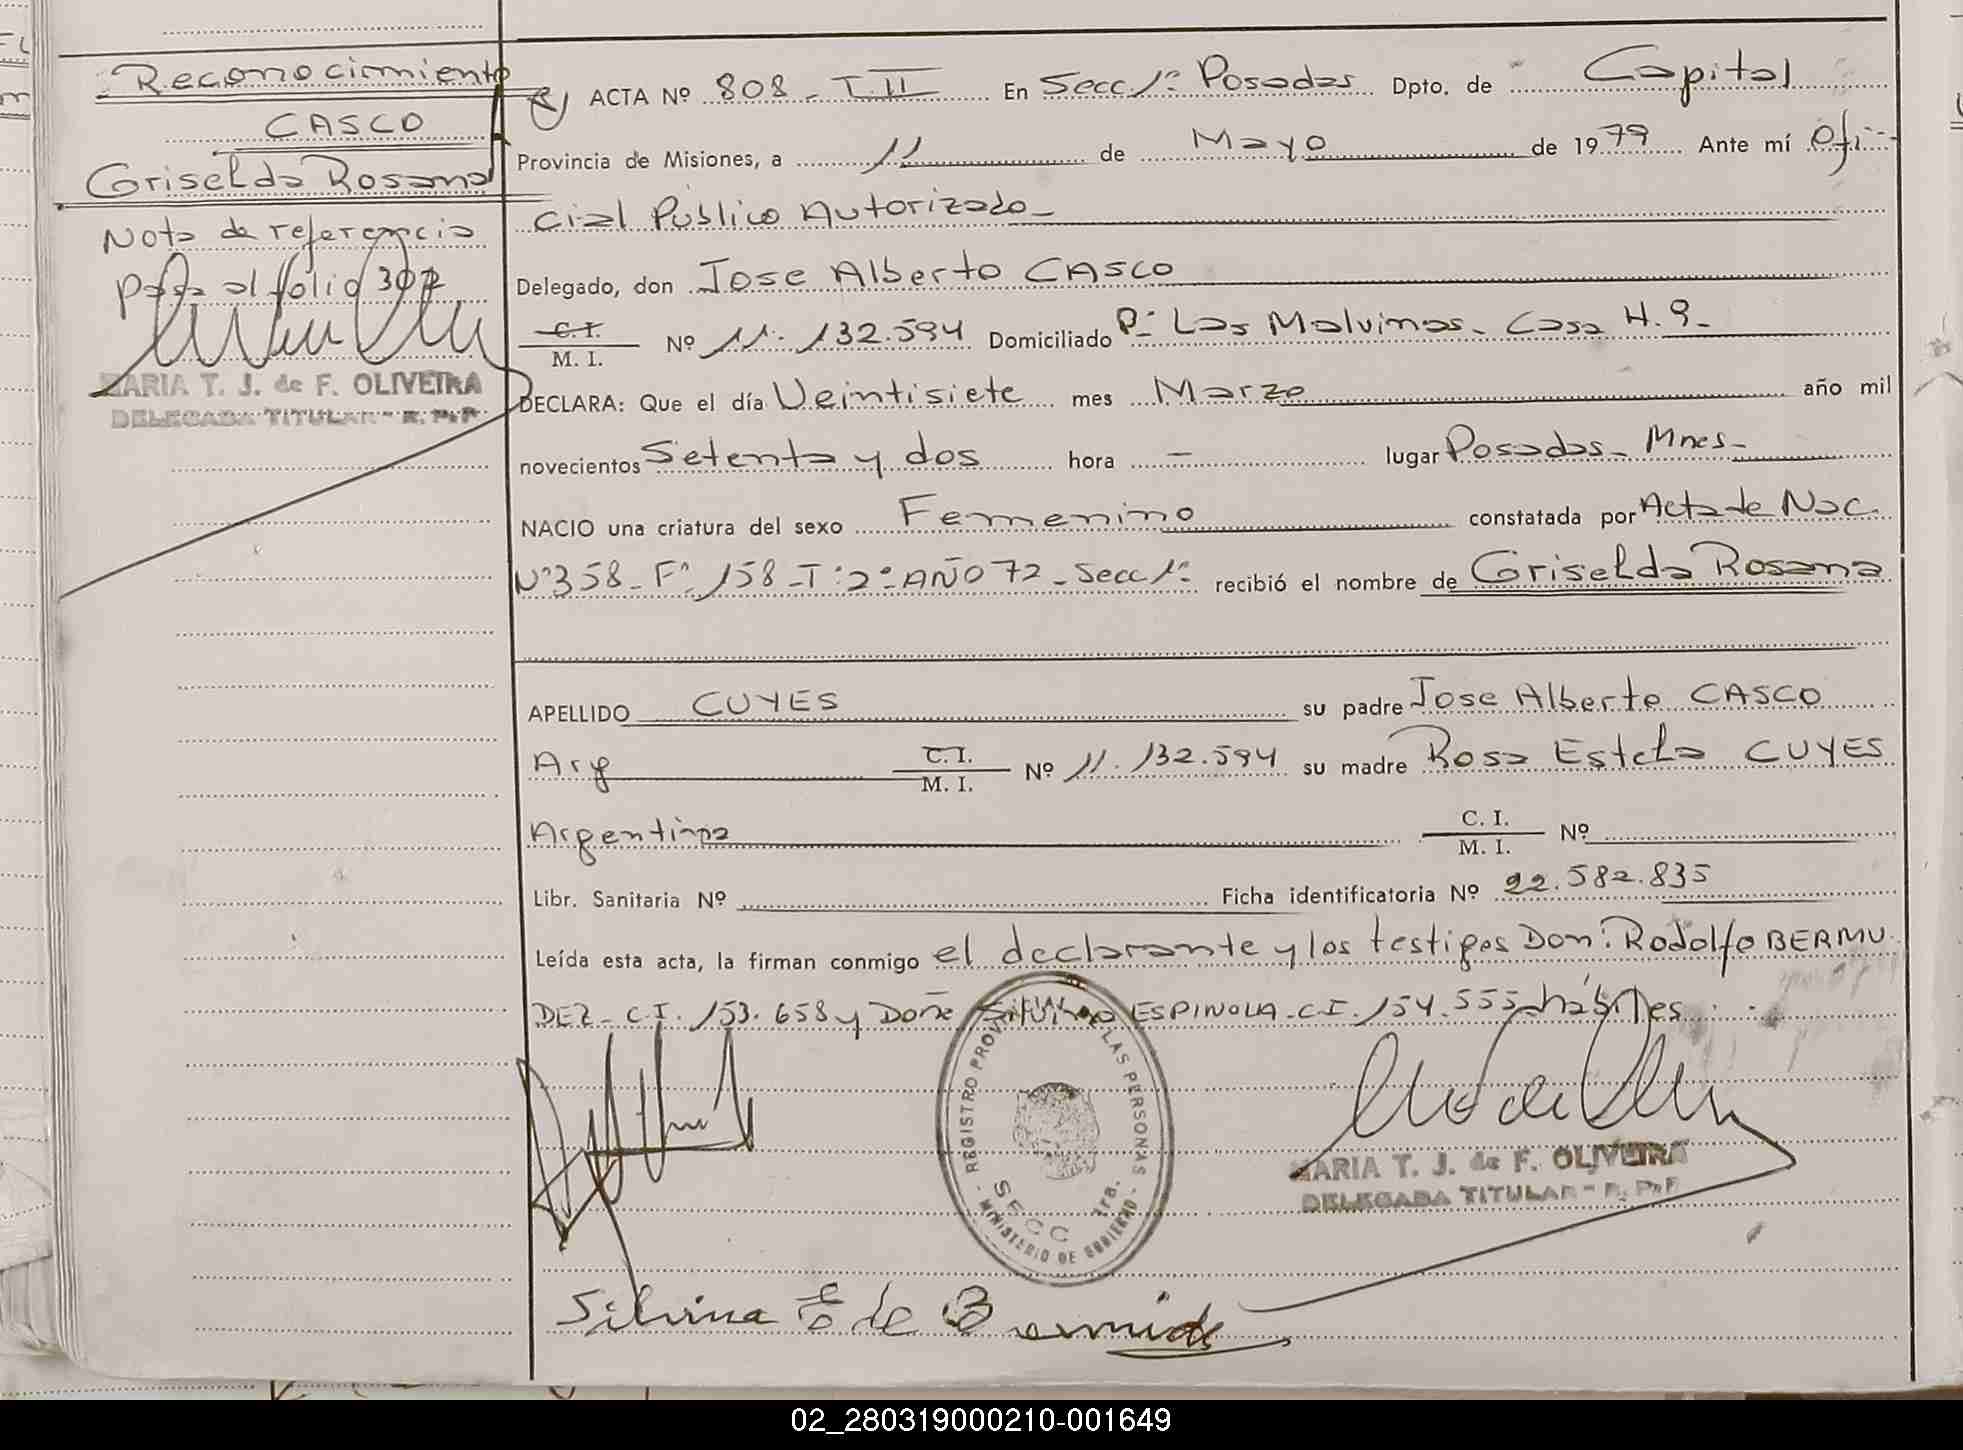 Reconocimiento
CASCO
Griselda Rosana
Nota de referencia
pasa al folio 307
MARIA T. J. de F. OLIVEIRA
DELEGADA TITULAR - R. P. P.
ACTA Nº 808 - T. II En Secc. 1ª Posadas Dpto. de Capital
Provincia de Misiones, a 11 de Mayo de 1979 Ante mí Ofi-
cial Público Autorizado -
Delegado, don Jose Alberto CASCO
C. I.
M. I. Nº 11.132.594 Domiciliado Bº Las Malvinas - Casa H. 9 -
DECLARA: Que el día Veintisiete mes Marzo año mil
novecientos Setenta y dos hora — lugar Posadas - Mnes -
NACIO una criatura del sexo Femenino constatada por Acta de Nac.
Nº 358 - Fº 158 - T: 2º AÑO 72 - Secc 1ª recibió el nombre de Griselda Rosana
APELLIDO CUYES su padre Jose Alberto CASCO
Arg C. I.
M. I. Nº 11.132.594 su madre Rosa Estela CUYES
Argentina C. I.
M. I. Nº
Libr. Sanitaria Nº Ficha identificatoria Nº 22.582.835
Leída esta acta, la firman conmigo el declarante y los testigos Don: Rodolfo BERMU
DEZ - C.I. 153.658 y Doña Silvina ESPINOLA - C.I. 154.555 hábiles
REGISTRO PROVINCIAL DE LAS PERSONAS
SECC 1ra.
- MINISTERIO DE GOBIERNO -
MARIA T. J. de F. OLIVEIRA
DELEGADA TITULAR - R. P. P.
Silvina E de Bermudez
02_280319000210-001649